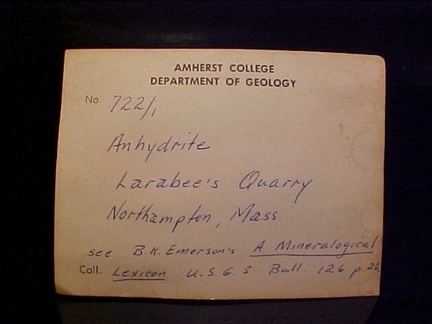 AMHERST COLLEGE
DEPARTMENT OF GEOLOGY
No. 722/1
Anhydrite
Larabee's Quarry
Northampton, Mass.
see B.K. Emerson's A Mineralogical
Coll. Lexicon U.S.G.S. Bull. 126 p.20